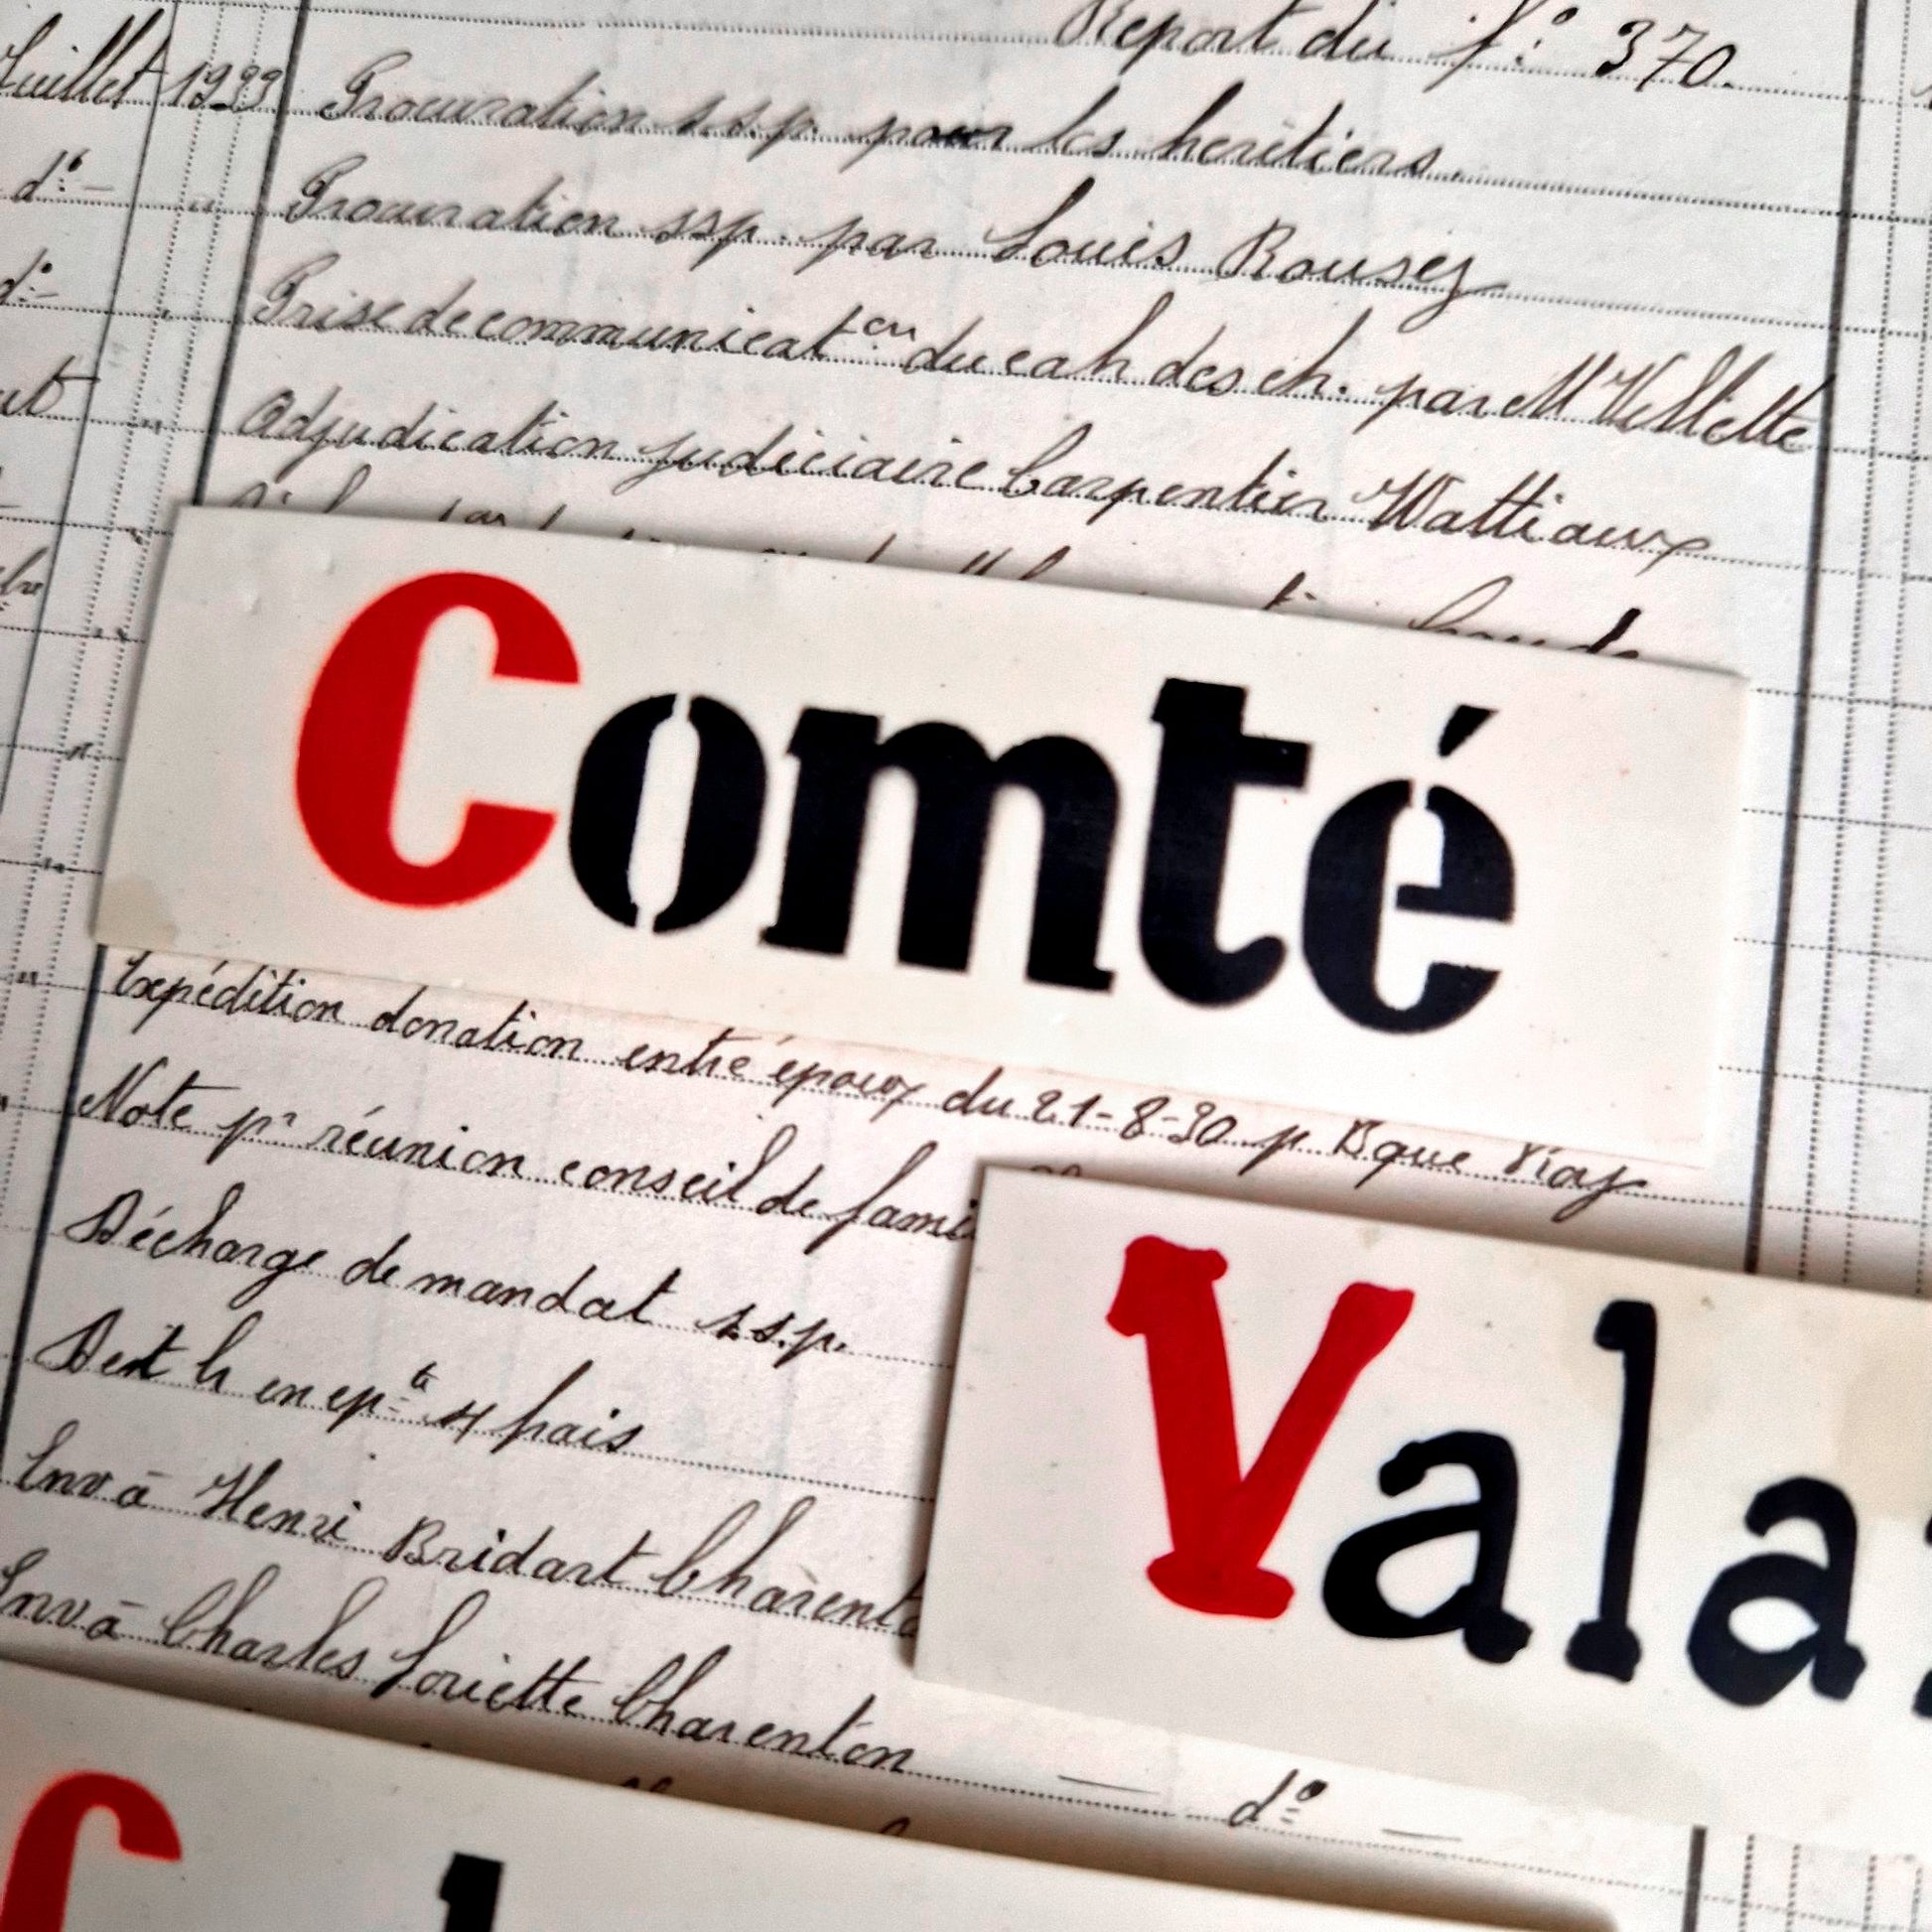 Report du f° 370.
Juillet 1933 Procuration s.s.p. pour les heritiers.
d° - " Procuration ssp. par Louis Rousez
d° - " Prise de communicat on du cah des ch. par M Vellielte
" Adjudication judiciaire Carpentier Wattiaux
Comté
Expédition donation entre époux du 21-8-30 p. Bque
Note pr réunion conseil de fami
Décharge de mandat s.s.p.
4 frais
Env à Henri Bridart Charent
Env à Charles Loriette Charenton — d° —
Vala